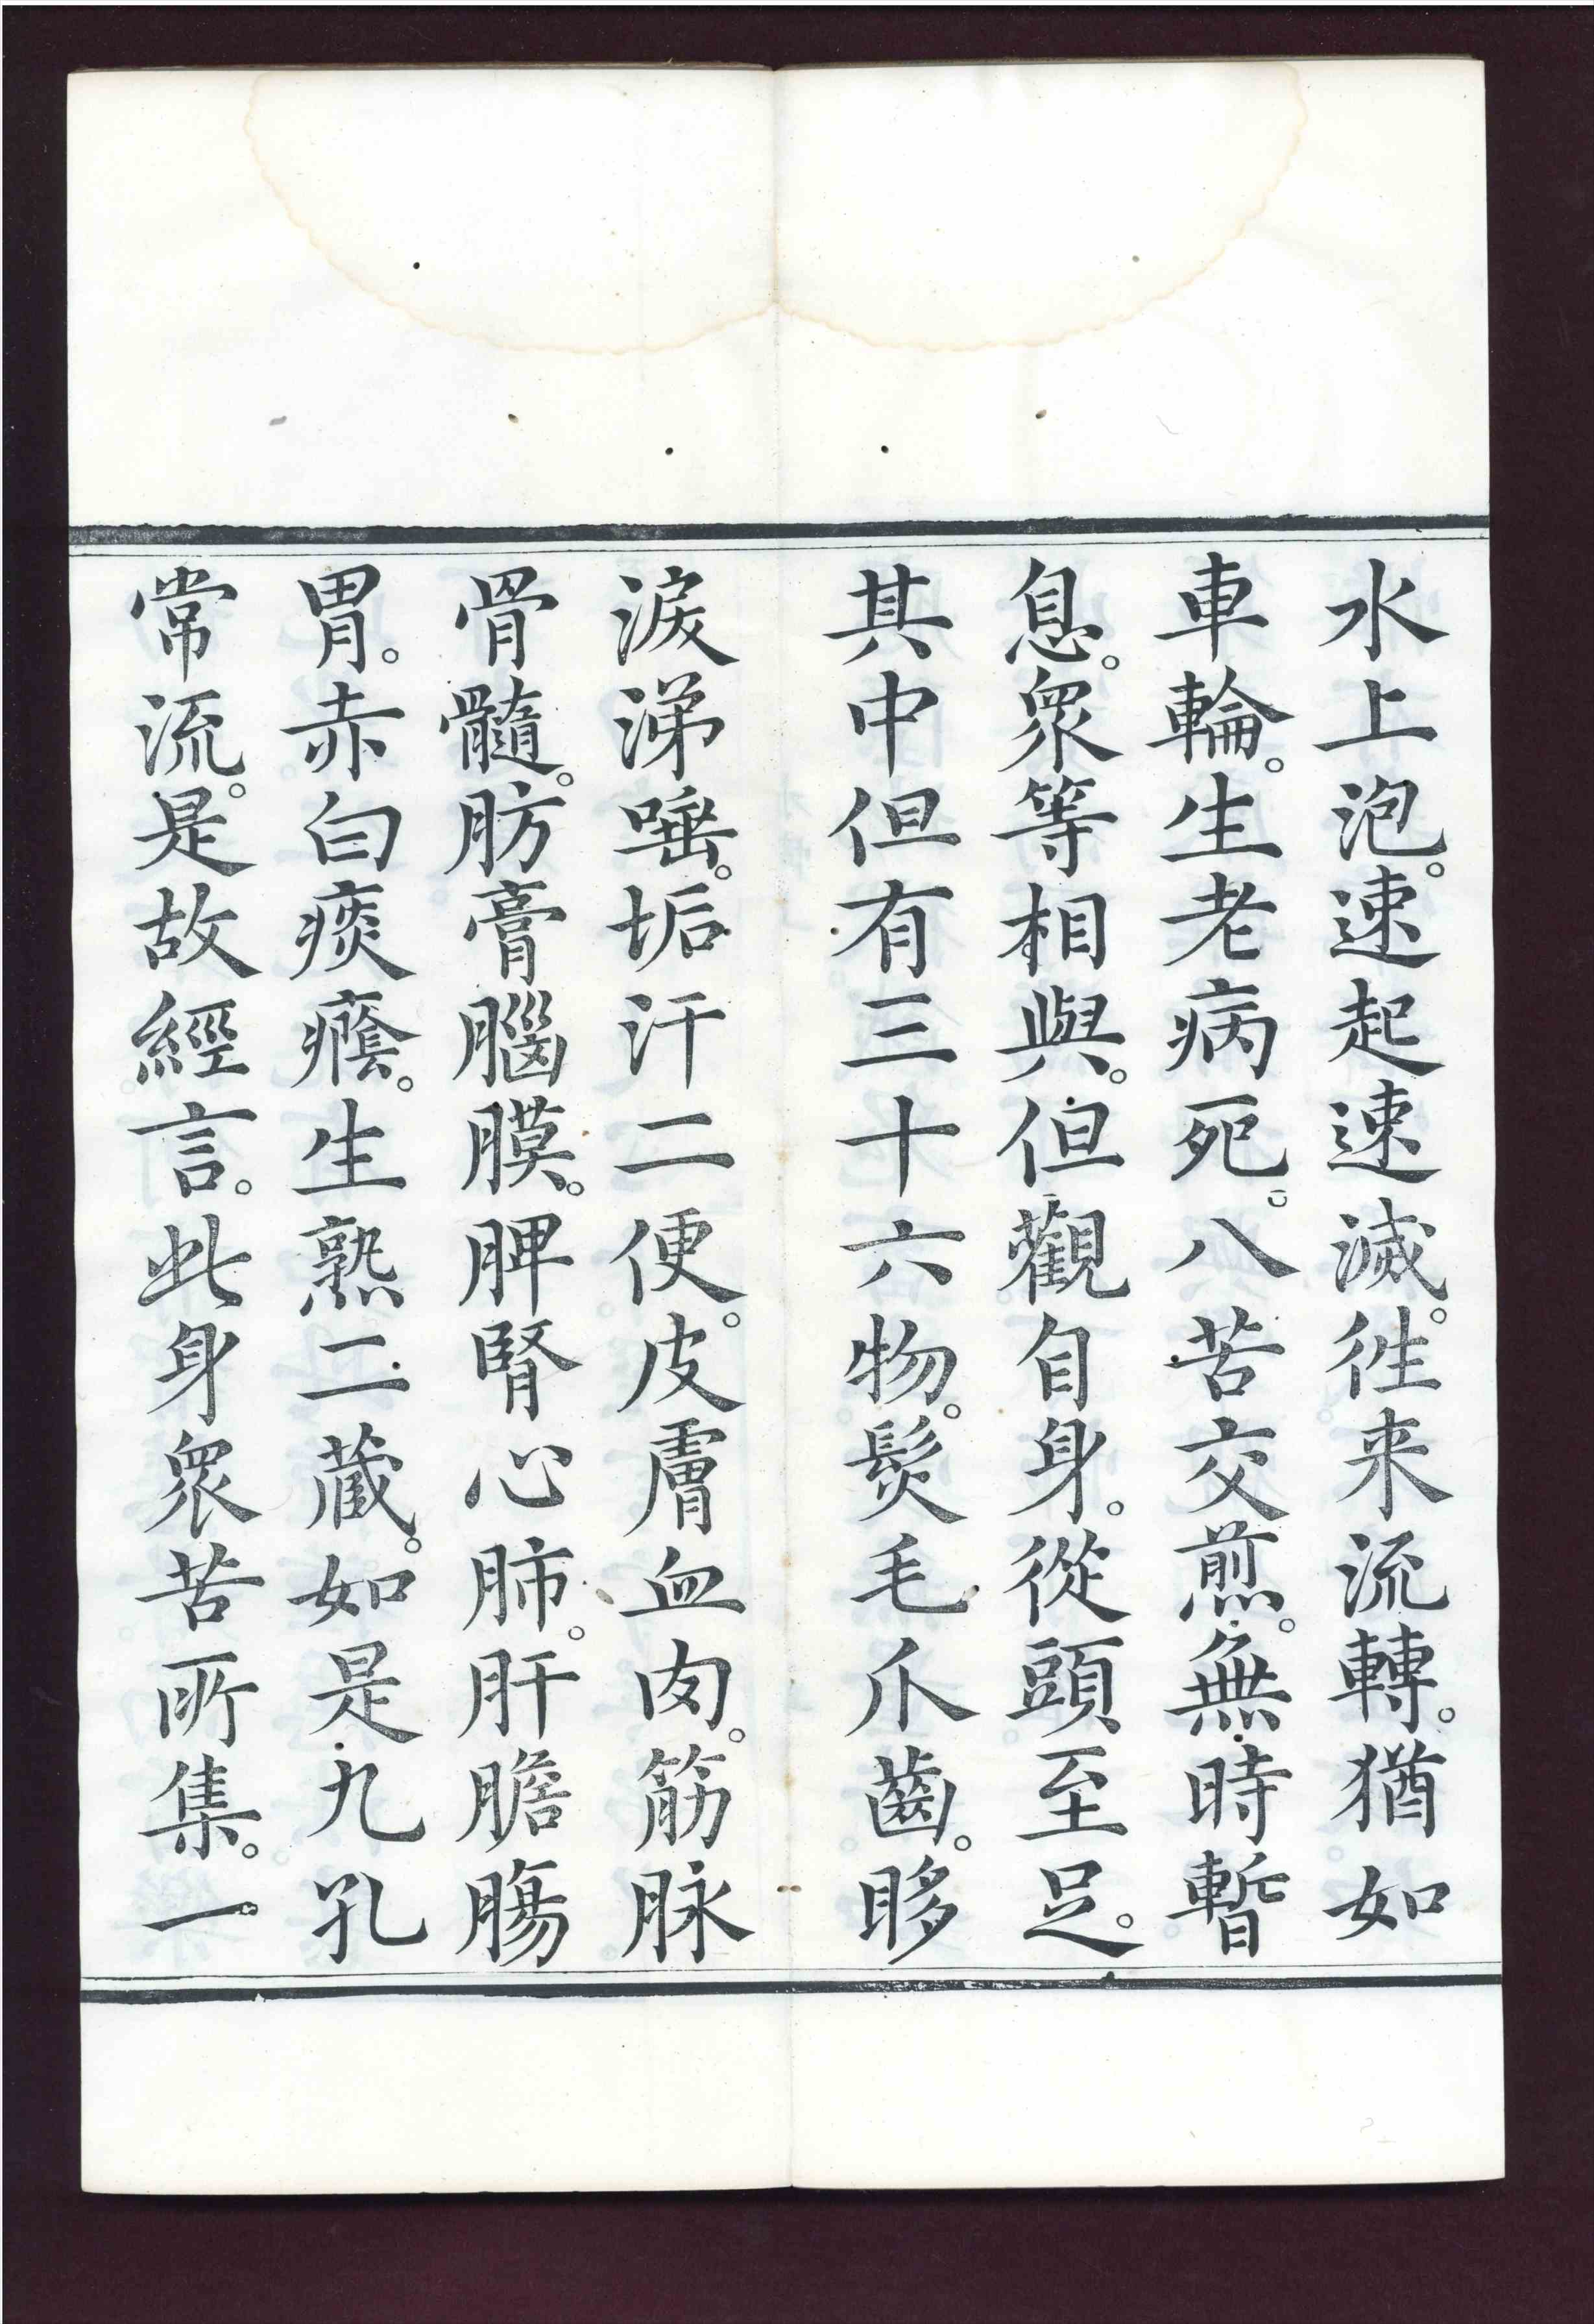 水上泡。速起速滅。徃来流轉。猶如
車輪。生老病死。八苦交煎。無時暫
息。衆等相與。但觀自身。從頭至足。
其中但有三十六物。髮毛爪齒。眵
淚涕唾。垢汗二便。皮膚血肉。筋脉
骨髓。肪膏腦膜。脾腎心肺。肝膽腸
胃。赤白痰癊。生熟二蔵。如是九孔
常流。是故經言。此身衆苦所集。一